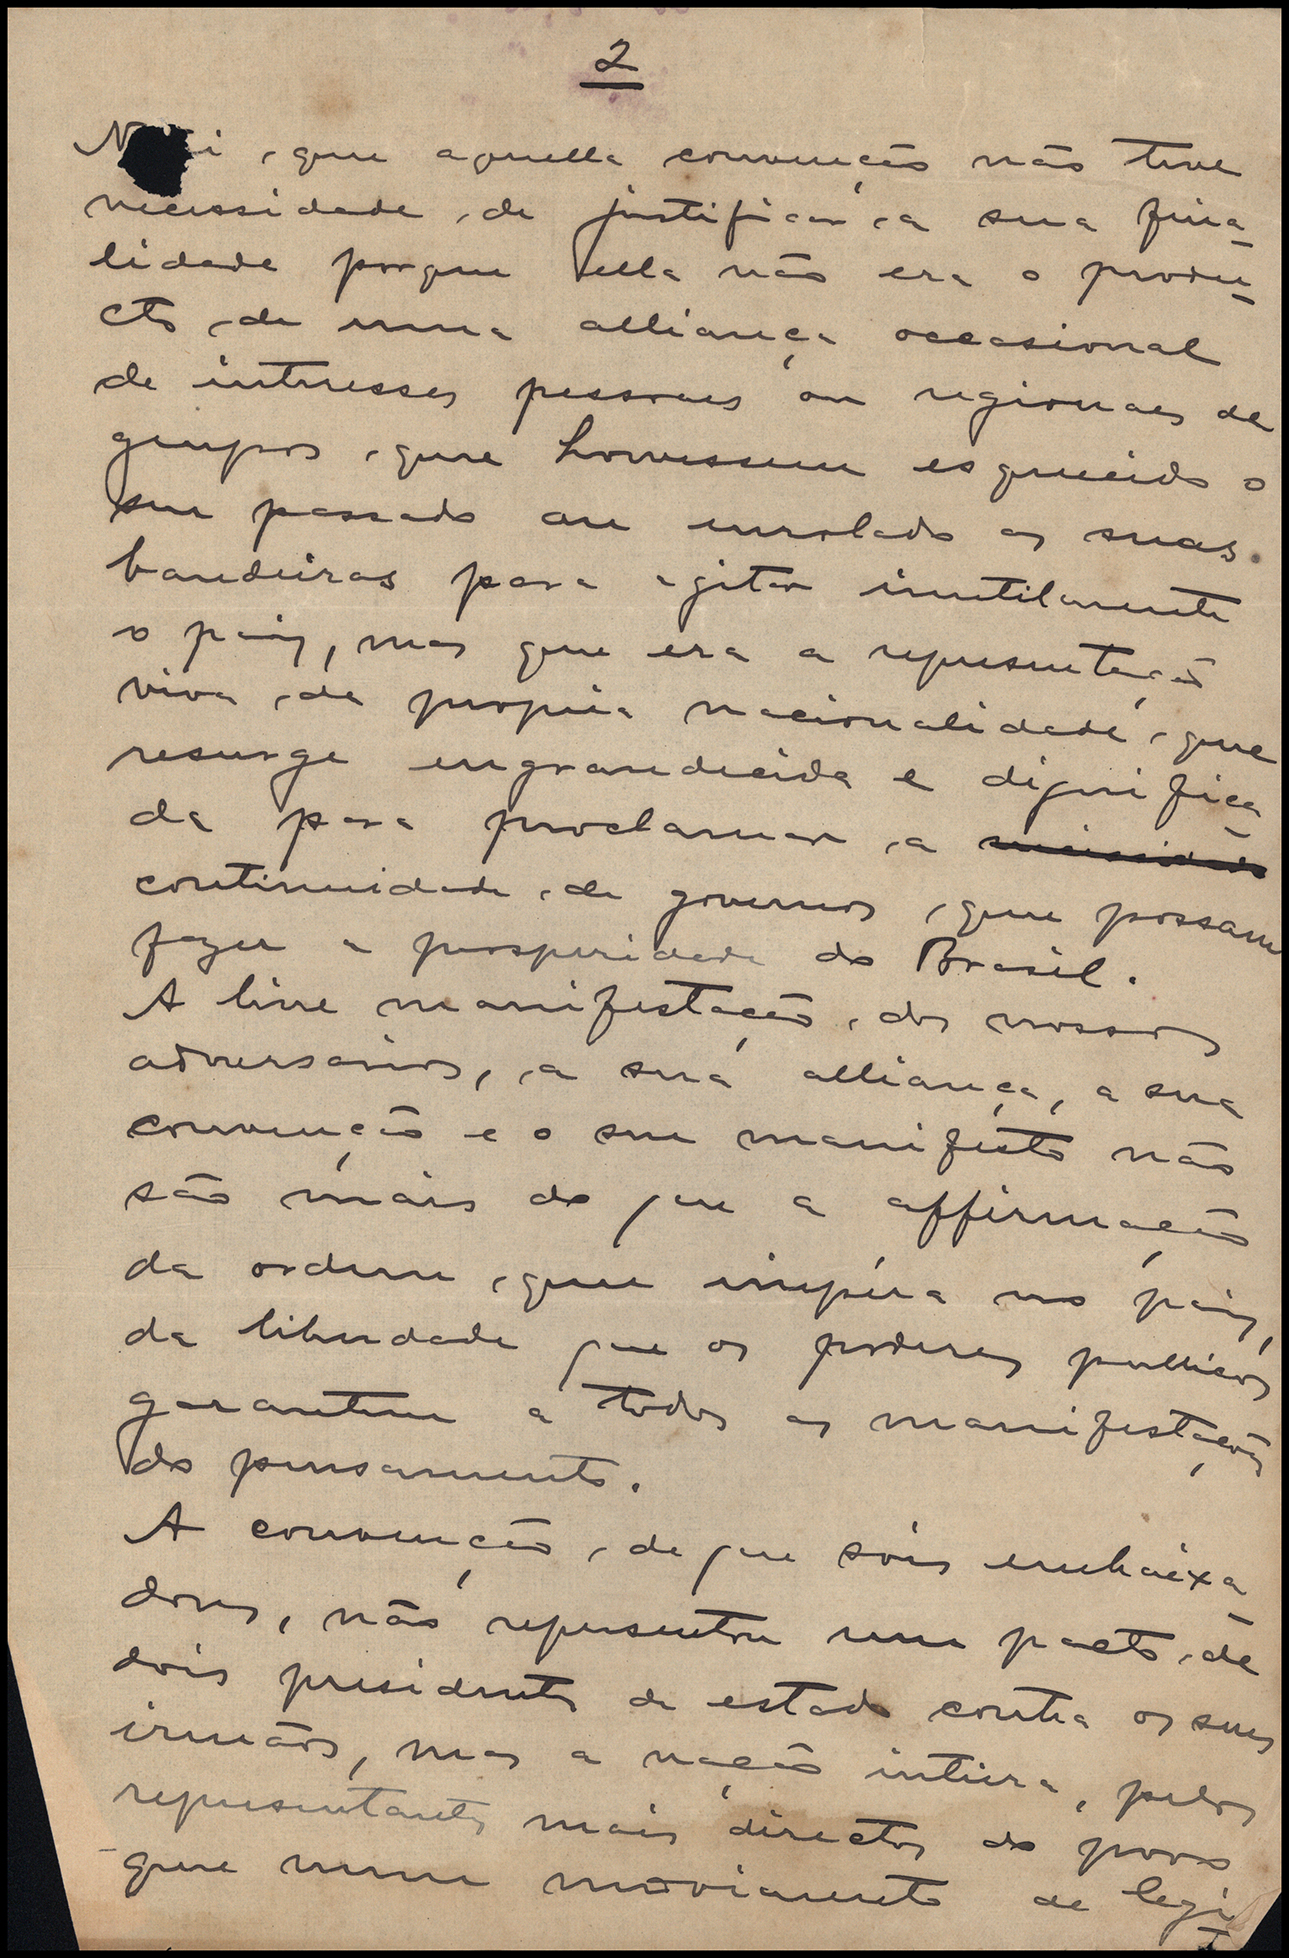 2
N i, que aquella convenção não teve
necessidade de justificar a sua fina-
lidade porque ella não era o produ-
cto de uma alliança occasional
de interesses pessoaes ou regionaes de
grupos que houvessem esquecido o
seu passado ou enrolado as suas
bandeiras para agitar inutilmente
o paiz, mas que era a representação
viva da propria nacionalidade, que
resurge engrandecida e dignifica-
da para proclamar a necessidade
continuidade de governos, que possam
fazer a prosperidade do Brasil.
A livre manifestação dos nossos
adversarios, a sua alliança, a sua
convenção e o seu manifesto não
são mais do que a affirmação
da ordem, que impera no paiz,
da liberdade que os poderes publicos
garantem a todas as manifestações
do pensamento.
A convenção, de que sóis embaixa-
dores, não representou um pacto de
dois presidentes de estado contra os seus
irmãos, mas a nação inteira, pelos
representantes mais directos do povo
que num movimento de legi-